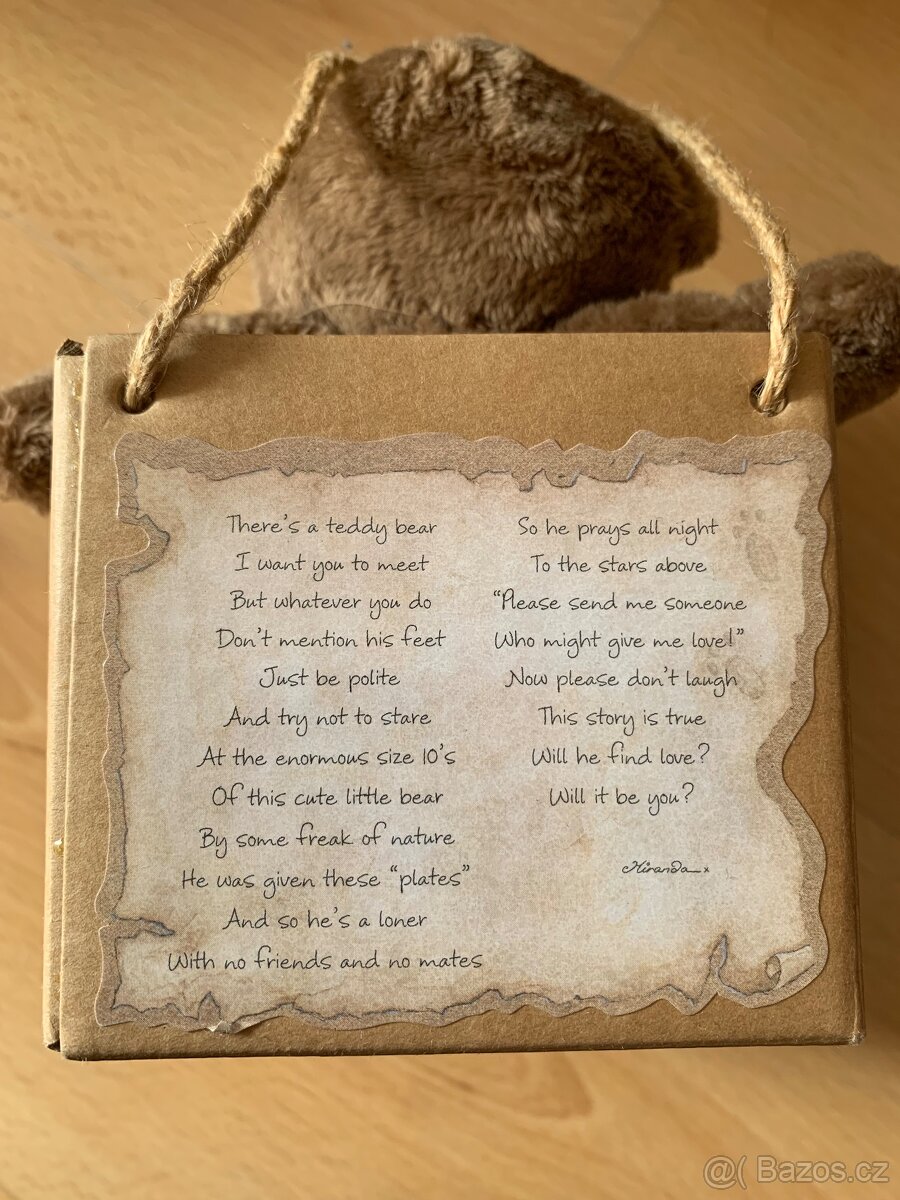 There's a teddy bear
I want you to meet
But whatever you do
Don't mention his feet
Just be polite
And try not to stare
At the enormous size 10's
Of this cute little bear
By some freak of nature
He was given these "plates"
And so he's a loner
With no friends and no mates
So he prays all night
To the stars above
"Please send me someone
Who might give me love!"
Now please don't laugh
This story is true
Will he find love?
Will it be you?
Miranda x
@( Bazos.cz